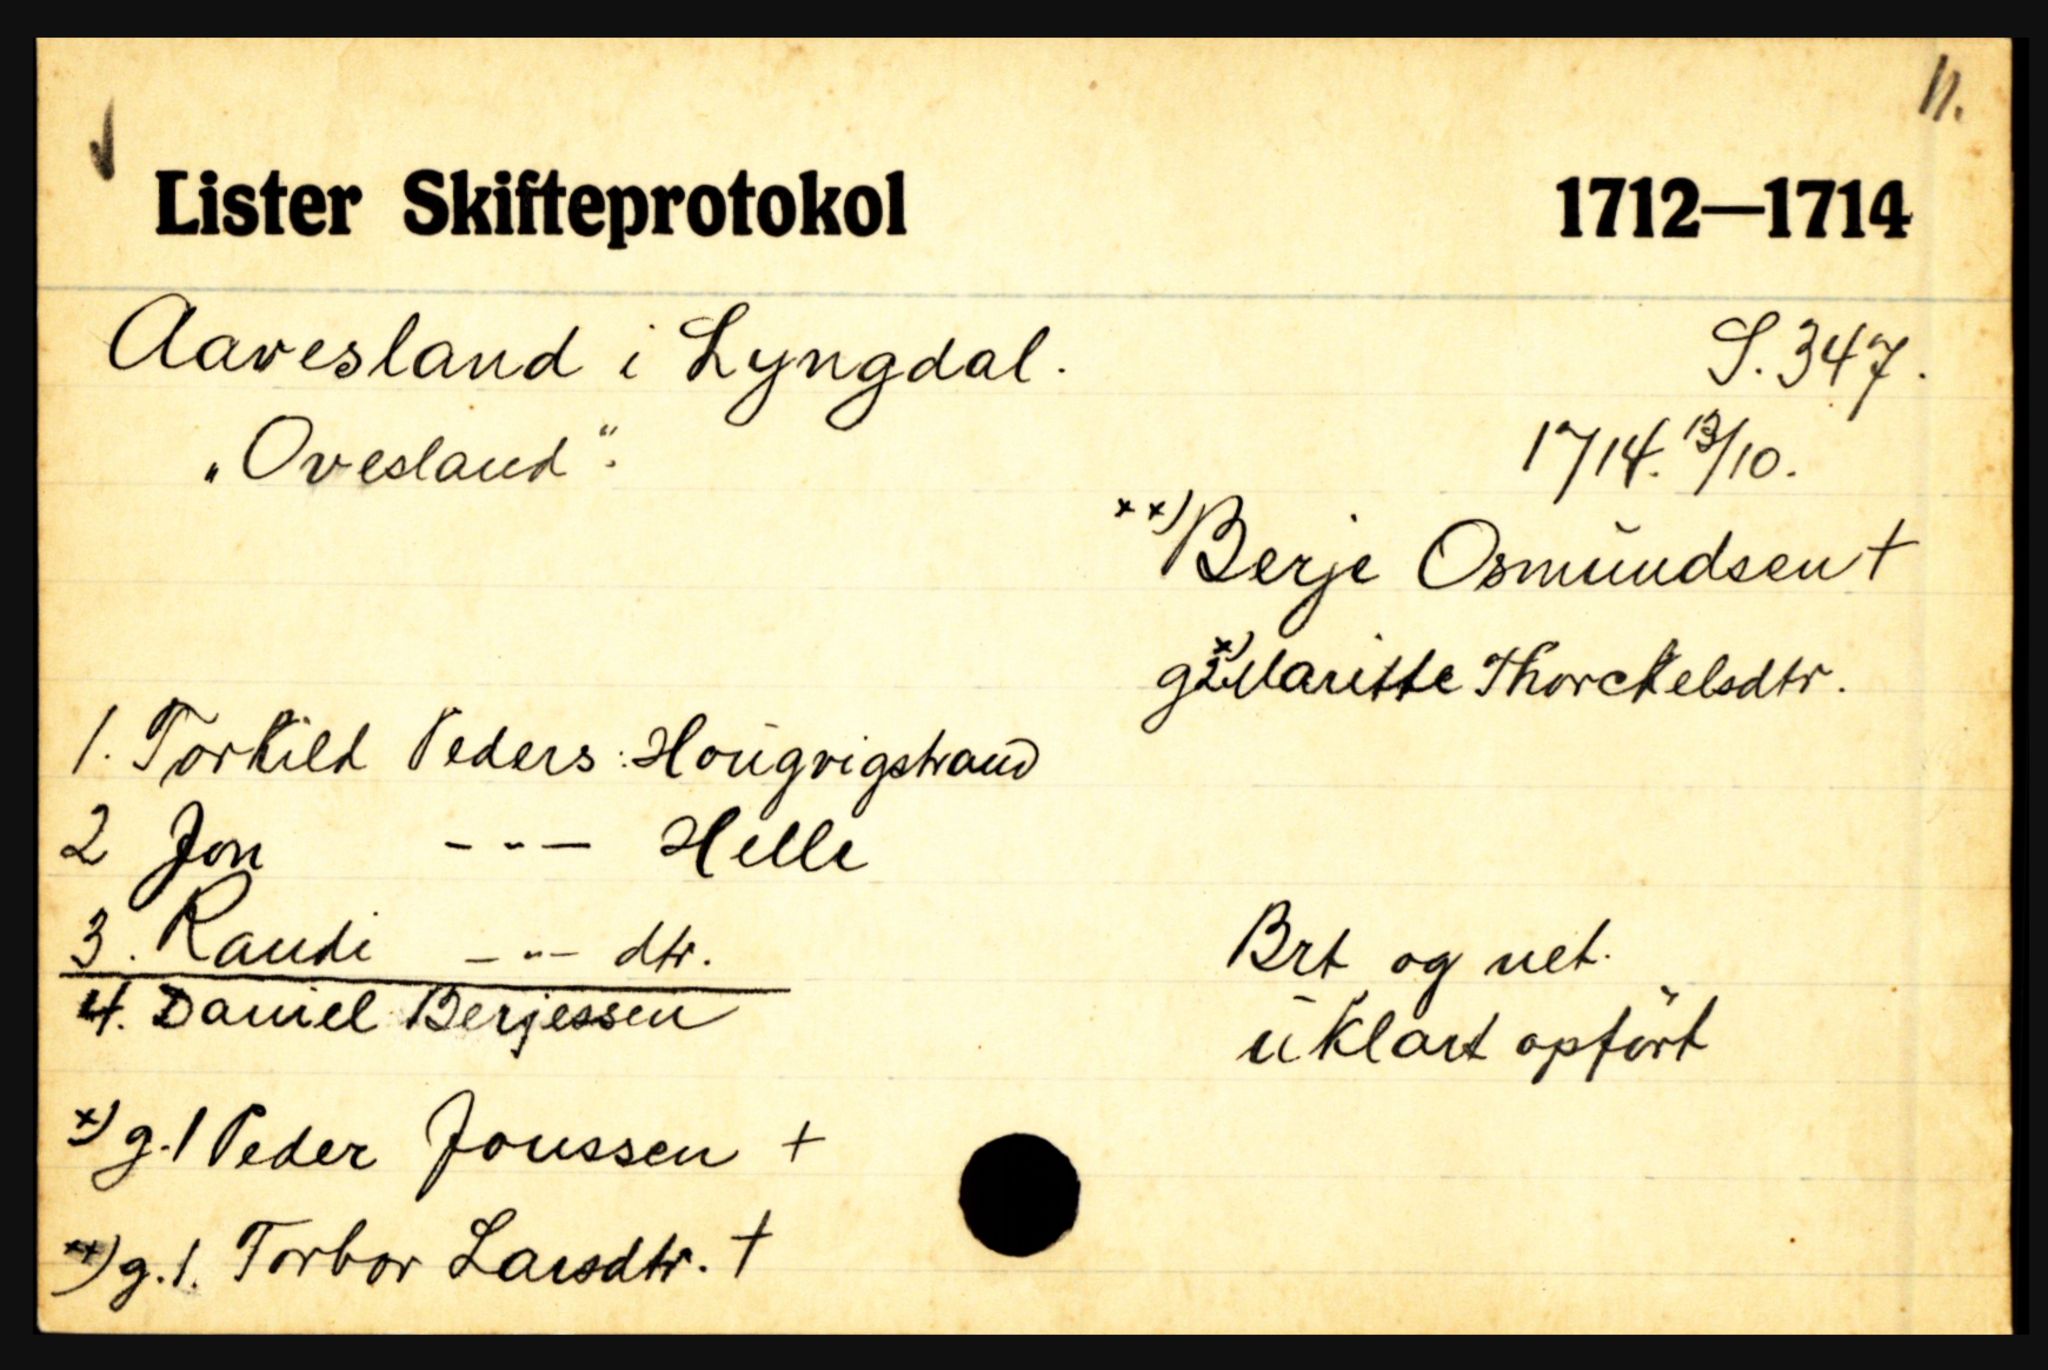 11.
Lister Skifteprotokol 1712—1714
Aavesland i Lyngdal. S. 347.
„Ovesland“. 1714. 13/10.
××) Berje Osmundsen +
g2 ×) Maritte Thorckelsdtr.
1. Torkild Peders: Hougvigstrand
2 Jon - " - Helle
3. Randi - " - dtr. Brt og net.
4. Daniel Berjessen uklart opført
×) g. 1 Peder Jonssen +
××) g. 1. Torbor Larsdtr. +